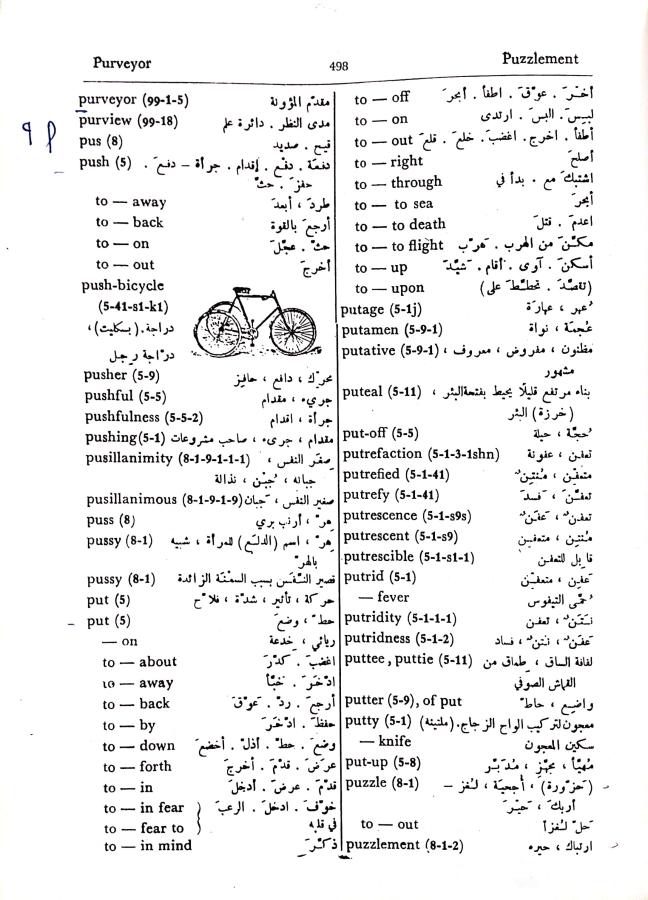 Purveyor
498
Puzzlement
purveyor (99-1-5) مقدّم المؤونة
purview (99-18) مدى النظر . دائرة علم
pus (8) قيح . صديد
push (5) دفعَة . دفْع . إقدام . جرأة – دفعَ .
حفزَ . حثّ
to — away طردَ ، أبعدَ
to — back أرجعَ بالقوة
to — on حثّ . عجّلَ
to — out أخرجَ
push-bicycle
(5-41-s1-k1)
دراجة . (بسكليت) ،
درّاجة رجل
pusher (5-9) محرّك ، دافع ، حافز
pushful (5-5) جريء ، مقدام
pushfulness (5-5-2) جرأة ، اقدام
pushing(5-1) مقدام ، جريء ، صاحب مشروعات
pusillanimity (8-1-9-1-1-1) صِغَر النفس ،
جبانه ، جُبْن ، نذالة
pusillanimous (8-1-9-1-9) صغير النفس ، جبان
puss (8) هرّ ، أرنب بري
pussy (8-1) هرّ ، اسم (الدلع) للمرأة ، شبيه
بالهرّ
pussy (8-1) قصير النَّفَس بسبب السمنة الزائدة
put (5) حركة ، تأثير ، شدّة ، فلاّح
put (5) حطّ ، وضعَ
— on ريائي ، خدعة
to — about اغضبَ . كدّرَ
to — away ادّخرَ . خبّأ
to — back أرجعَ . ردّ . عوّقَ
to — by حفظَ . ادّخرَ
to — down وضعَ . حطّ . أذلّ . أخضعَ
to — forth عرضَ . قدّمَ . أخرجَ
to — in قدّمَ . عرضَ . أدخلَ
to — in fear خوّفَ . ادخلَ . الرعبَ
to — fear to في قلبه
to — in mind ذكّرَ
to — off أخّرَ . عوّقَ . اطفأ . أبحرَ
to — on لبسَ . البسَ . ارتدى
to — out أطفأ . اخرج . اغضبَ . خلعَ . قلعَ
to — right أصلحَ
to — through اشتبكَ مع . بدأ في
to — to sea أبحرَ
to — to death اعدمَ . قتلَ
to — to flight مكّنَ من الهرب . هرّب
to — up أسكنَ . آوى . أقام . شيّدَ
to — upon (تقصّدَ . تخطّطَ على)
putage (5-1j) عُهر ، عهارة
putamen (5-9-1) عُجمَة ، نواة
putative (5-9-1) مظنون ، مفروض ، معروف ،
مشهور
puteal (5-11) بناء مرتفع قليلًا يحيط بفتحة البئر ،
(خرزة) البئر
put-off (5-5) حُجّة ، حيلة
putrefaction (5-1-3-1shn) تعفن ، عفونة
putrefied (5-1-41) متعفّن ، مُنتِنٌ
putrefy (5-1-41) تعفّنَ ، فسدَ
putrescence (5-1-s9s) تعفنٌ ، عَفَنٌ
putrescent (5-1-s9) مُنتِن ، متعفن
putrescible (5-1-s1-1) قابل للتعفن
putrid (5-1) عَفِن ، متعفّن
— fever حُمّى التيفوس
putridity (5-1-1-1) نَتَنٌ ، تعفن
putridness (5-1-2) عَفَنٌ ، نتنٌ ، فساد
puttee, puttie (5-11) لفافة الساق ، طماق من
القماش الصوفي
putter (5-9), of put واضع ، حاطّ
putty (5-1) معجون لتركيب الواح الزجاج.
— knife سكين المعجون
put-up (5-8) مُهيّأ ، مجهّز ، مُدبّر
puzzle (8-1) (حزّورة) ، أحجيّة ، لُغز –
أربكَ ، حيّرَ
to — out حلّ لُغزاً
puzzlement (8-1-2) ارتباك ، حيره